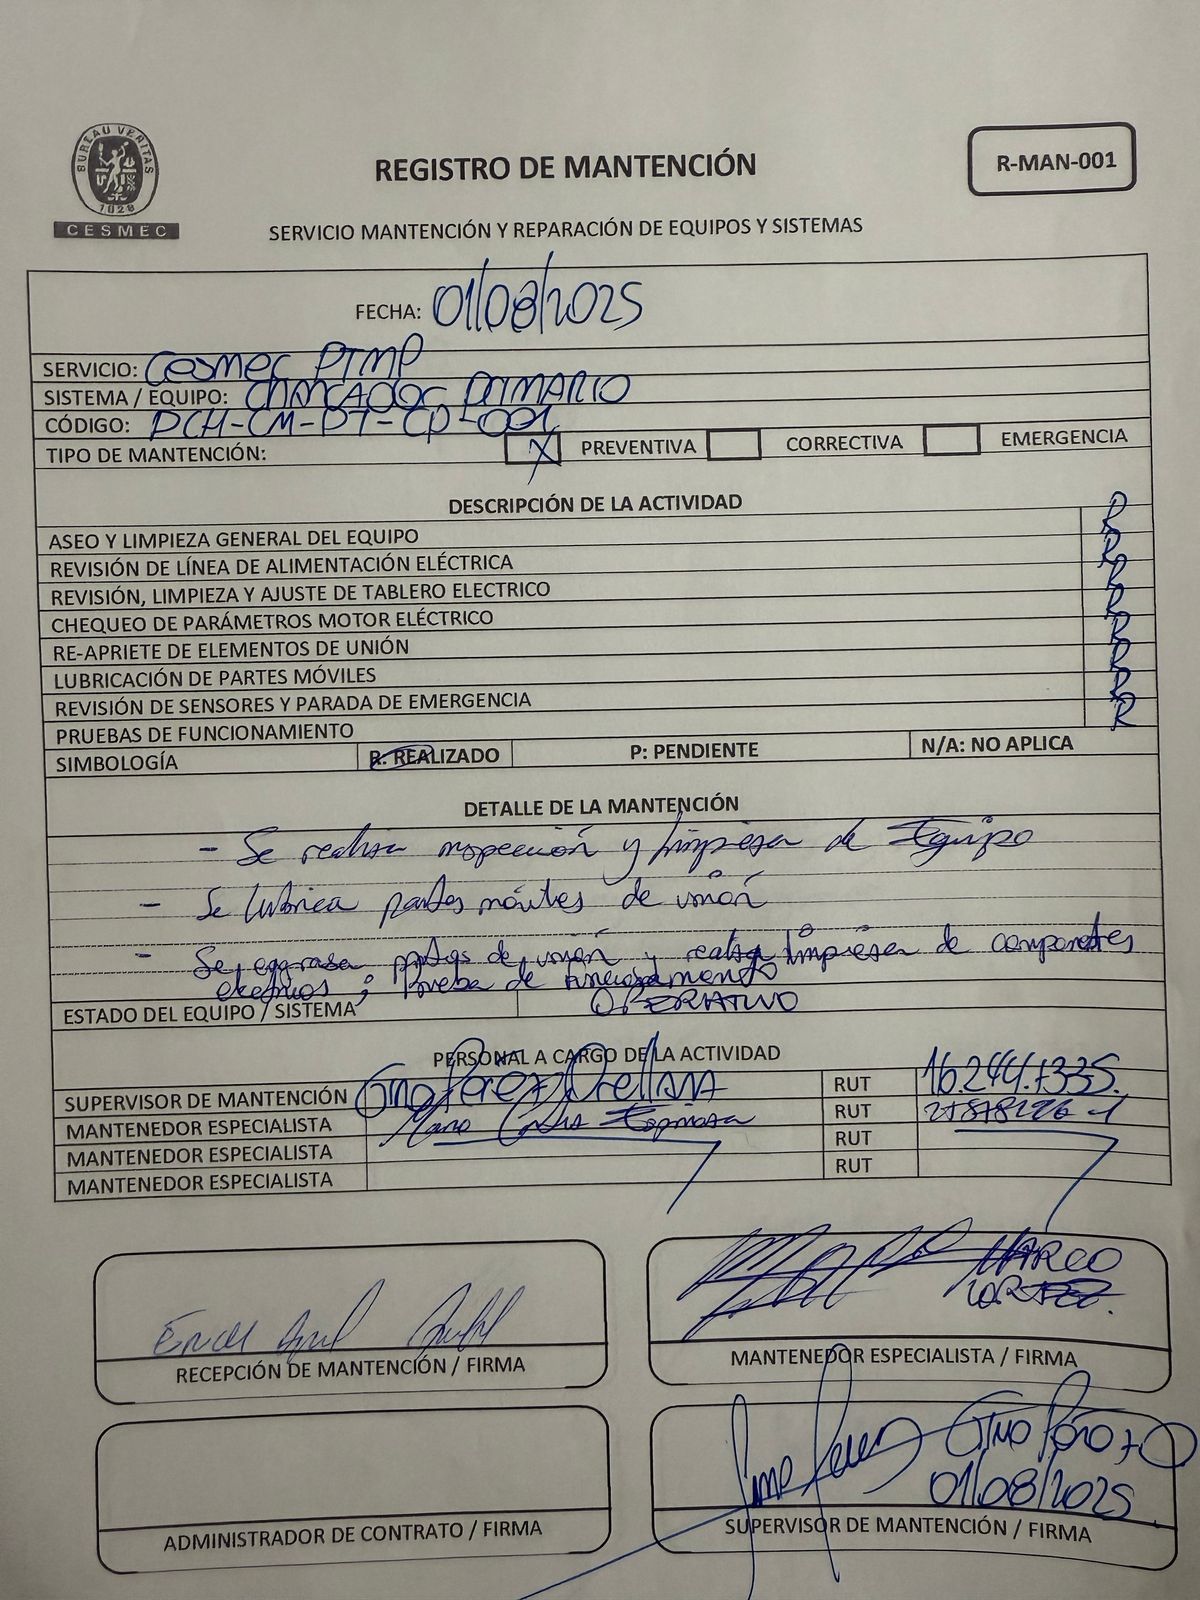 BUREAU VERITAS
1828
CESMEC
REGISTRO DE MANTENCIÓN
R-MAN-001
SERVICIO MANTENCIÓN Y REPARACIÓN DE EQUIPOS Y SISTEMAS
FECHA: 01/08/2025
SERVICIO: Cesmec PTMP
SISTEMA / EQUIPO: CHANCADOR PRIMARIO
CÓDIGO: DCH-CM-PT-CP-001
TIPO DE MANTENCIÓN: X PREVENTIVA CORRECTIVA EMERGENCIA
DESCRIPCIÓN DE LA ACTIVIDAD
ASEO Y LIMPIEZA GENERAL DEL EQUIPO R
REVISIÓN DE LÍNEA DE ALIMENTACIÓN ELÉCTRICA R
REVISIÓN, LIMPIEZA Y AJUSTE DE TABLERO ELECTRICO R
CHEQUEO DE PARÁMETROS MOTOR ELÉCTRICO R
RE-APRIETE DE ELEMENTOS DE UNIÓN R
LUBRICACIÓN DE PARTES MÓVILES R
REVISIÓN DE SENSORES Y PARADA DE EMERGENCIA R
PRUEBAS DE FUNCIONAMIENTO R
SIMBOLOGÍA R: REALIZADO P: PENDIENTE N/A: NO APLICA
DETALLE DE LA MANTENCIÓN
- Se realiza inspección y limpiesa de Equipo
- Se lubrica partes móviles de unión
- Se engrasa ptos de unión y realiza limpiesa de componentes
electricos ; Prueba de funcionamento
ESTADO DEL EQUIPO / SISTEMA OPERATIVO
PERSONAL A CARGO DE LA ACTIVIDAD
SUPERVISOR DE MANTENCIÓN Gino Pérez Orellana RUT 16.244.733-5.
MANTENEDOR ESPECIALISTA Espinosa RUT
MANTENEDOR ESPECIALISTA RUT
MANTENEDOR ESPECIALISTA RUT
MARCO
CORTEZ.
RECEPCIÓN DE MANTENCIÓN / FIRMA
MANTENEDOR ESPECIALISTA / FIRMA
Gino Pérez O
01/08/2025
ADMINISTRADOR DE CONTRATO / FIRMA
SUPERVISOR DE MANTENCIÓN / FIRMA